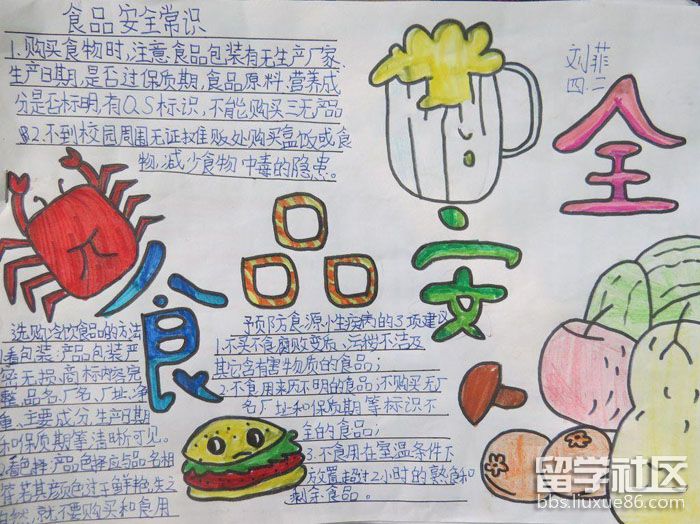 食品安全常识
1.购买食物时,注意食品包装有无生产厂家、
生产日期,是否过保质期,食品原料、营养成
分是否标明,有QS标识,不能购买三无产品
2.不到校园周围无证摊贩处购买盒饭或食
物,减少食物中毒的隐患。
刘菲
四.二
全
安
品
食
选购冷饮食品的方法
1看包装:产品包装严
密无损,商标内容完
整,品名、厂名、厂址、净
重、主要成分、生产日期
和保质期等清晰可见。
2看色择:产品色择应与品名相
符,若其颜色过于鲜艳,失之
自然,就不要购买和食用
预防食源小性疾病的3项建议
1.不买不食腐败变质、污秽不洁及
其它含有害物质的食品;
2.不食用来历不明的食品;不购买无厂
名厂址和保质期等标识不
全的食品;
3.不食用在室温条件下
放置超过2小时的熟食和
剩余食品。
留学社区
bbs.liuxue86.com